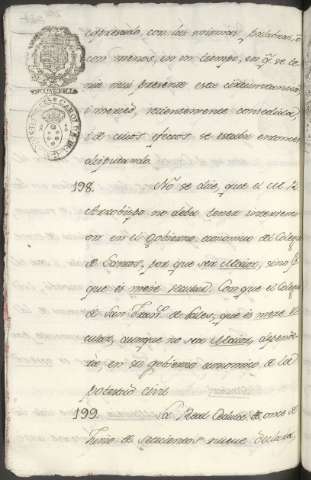 expresada, con las mismas palabras, ó
con menos, en un tiempo, en q.e se te
nia muy presente esta circunstancia
i merced, recientemente concedida,
i de cuios efectos se estaba entonces
disputando.
198. No se dice, que el M. R.
Arzobispo no debe tener intervenci
on en el Gobierno economico del Colegio
de Santos, por que sea Maior, sino p.r
que es mere secular. Con que el Colegio
de San Fran.co de Sales, que es mere se
cular, aunque no sea Maior,
en su gobierno economico de la
potestad civil.
199. La Real Cedula de once de
Junio de setecientos nueve